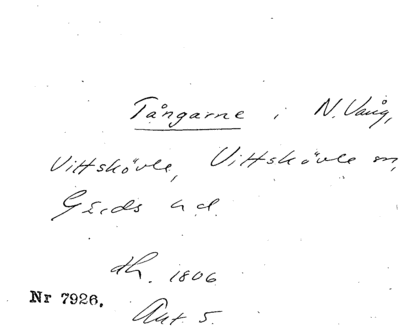 Tångarne i N. Vång,
Vittskövle, Vittskövle sn,
Gärds hd.
dh. 1806
Nr 7926.
Akt 5.